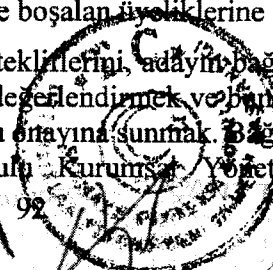 e boşalan üyeliklerine
tekliflerini, adayın bağ
değerlendirmek ve bun
onayına sunmak. Bağ
Kurumsal Yönet
92